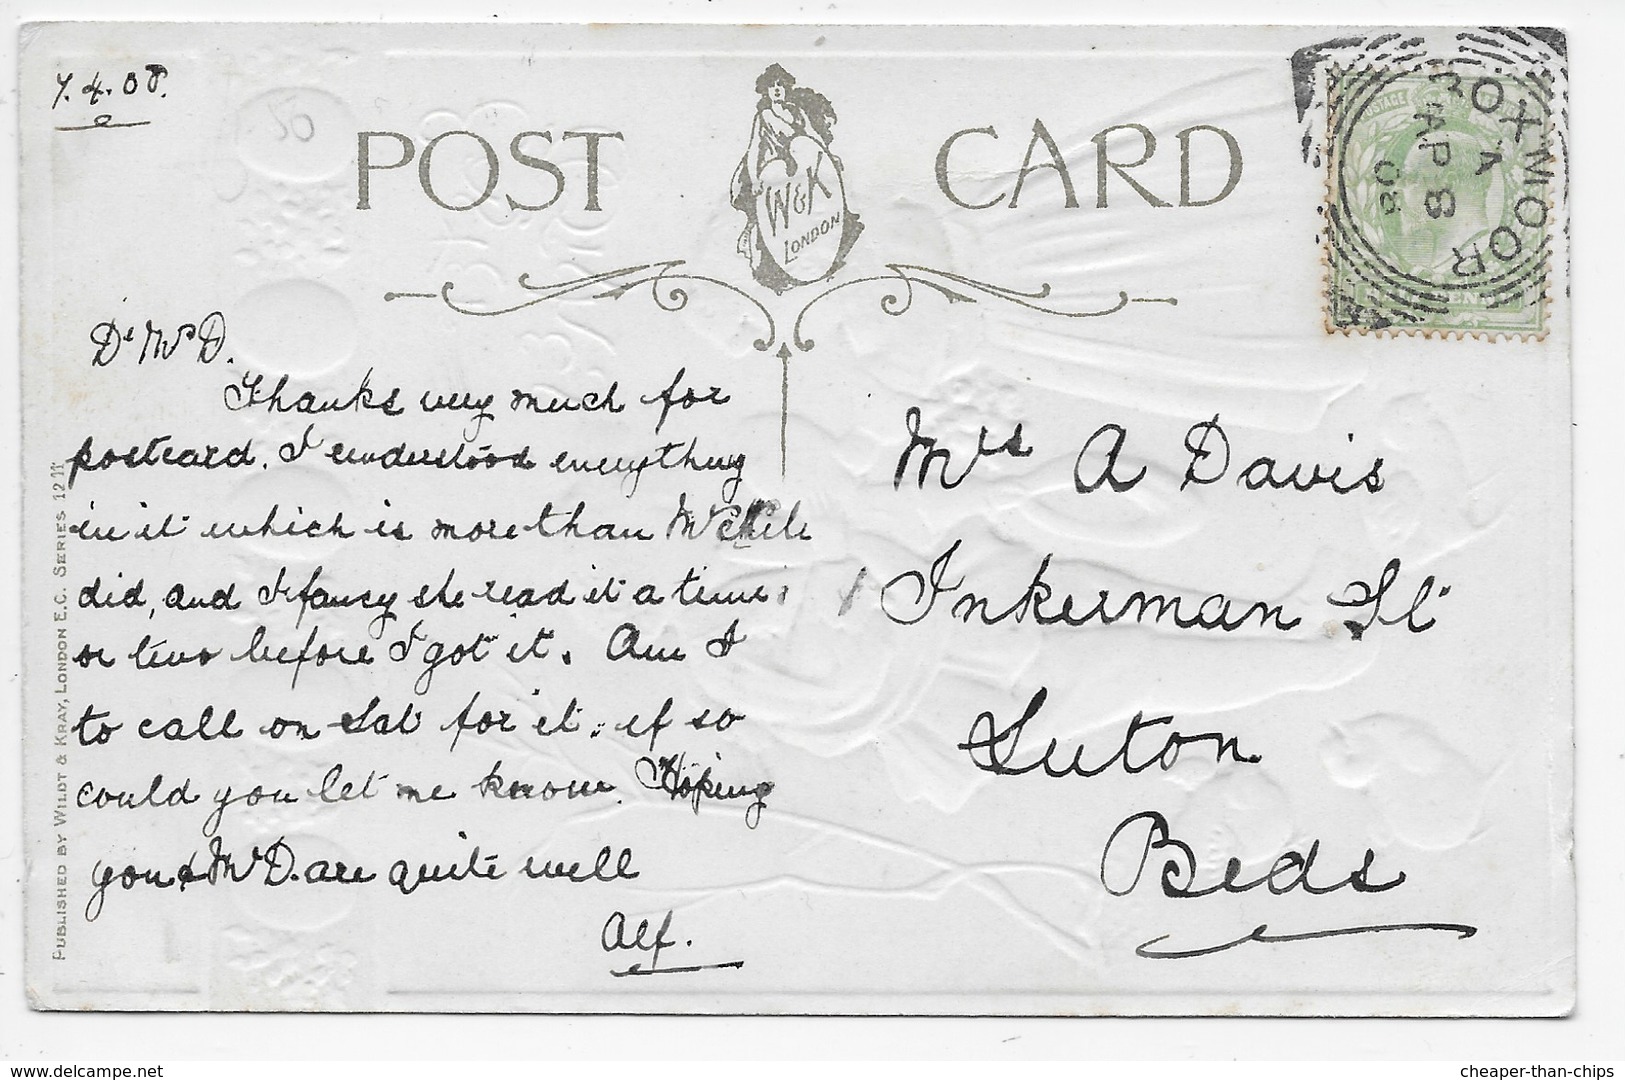 7.4.08.
POST CARD
W&K
LONDON
BOXMOOR
A
AP 8
08
POSTAGE
Dr Mrs D.
Thanks very much for
postcard. I understood everything
in it which is more than
did, and I fancy she read it a time
or two before I got it. Am I
to call on Sat for it. if so
could you let me know. Hoping
you & Mr D. are quite well
Alf.
Mrs A Davis
Inkerman St
Luton
Beds
PUBLISHED BY WILDT & KRAY, LONDON E.C. SERIES 1211
delcampe.net
cheaper-than-chips